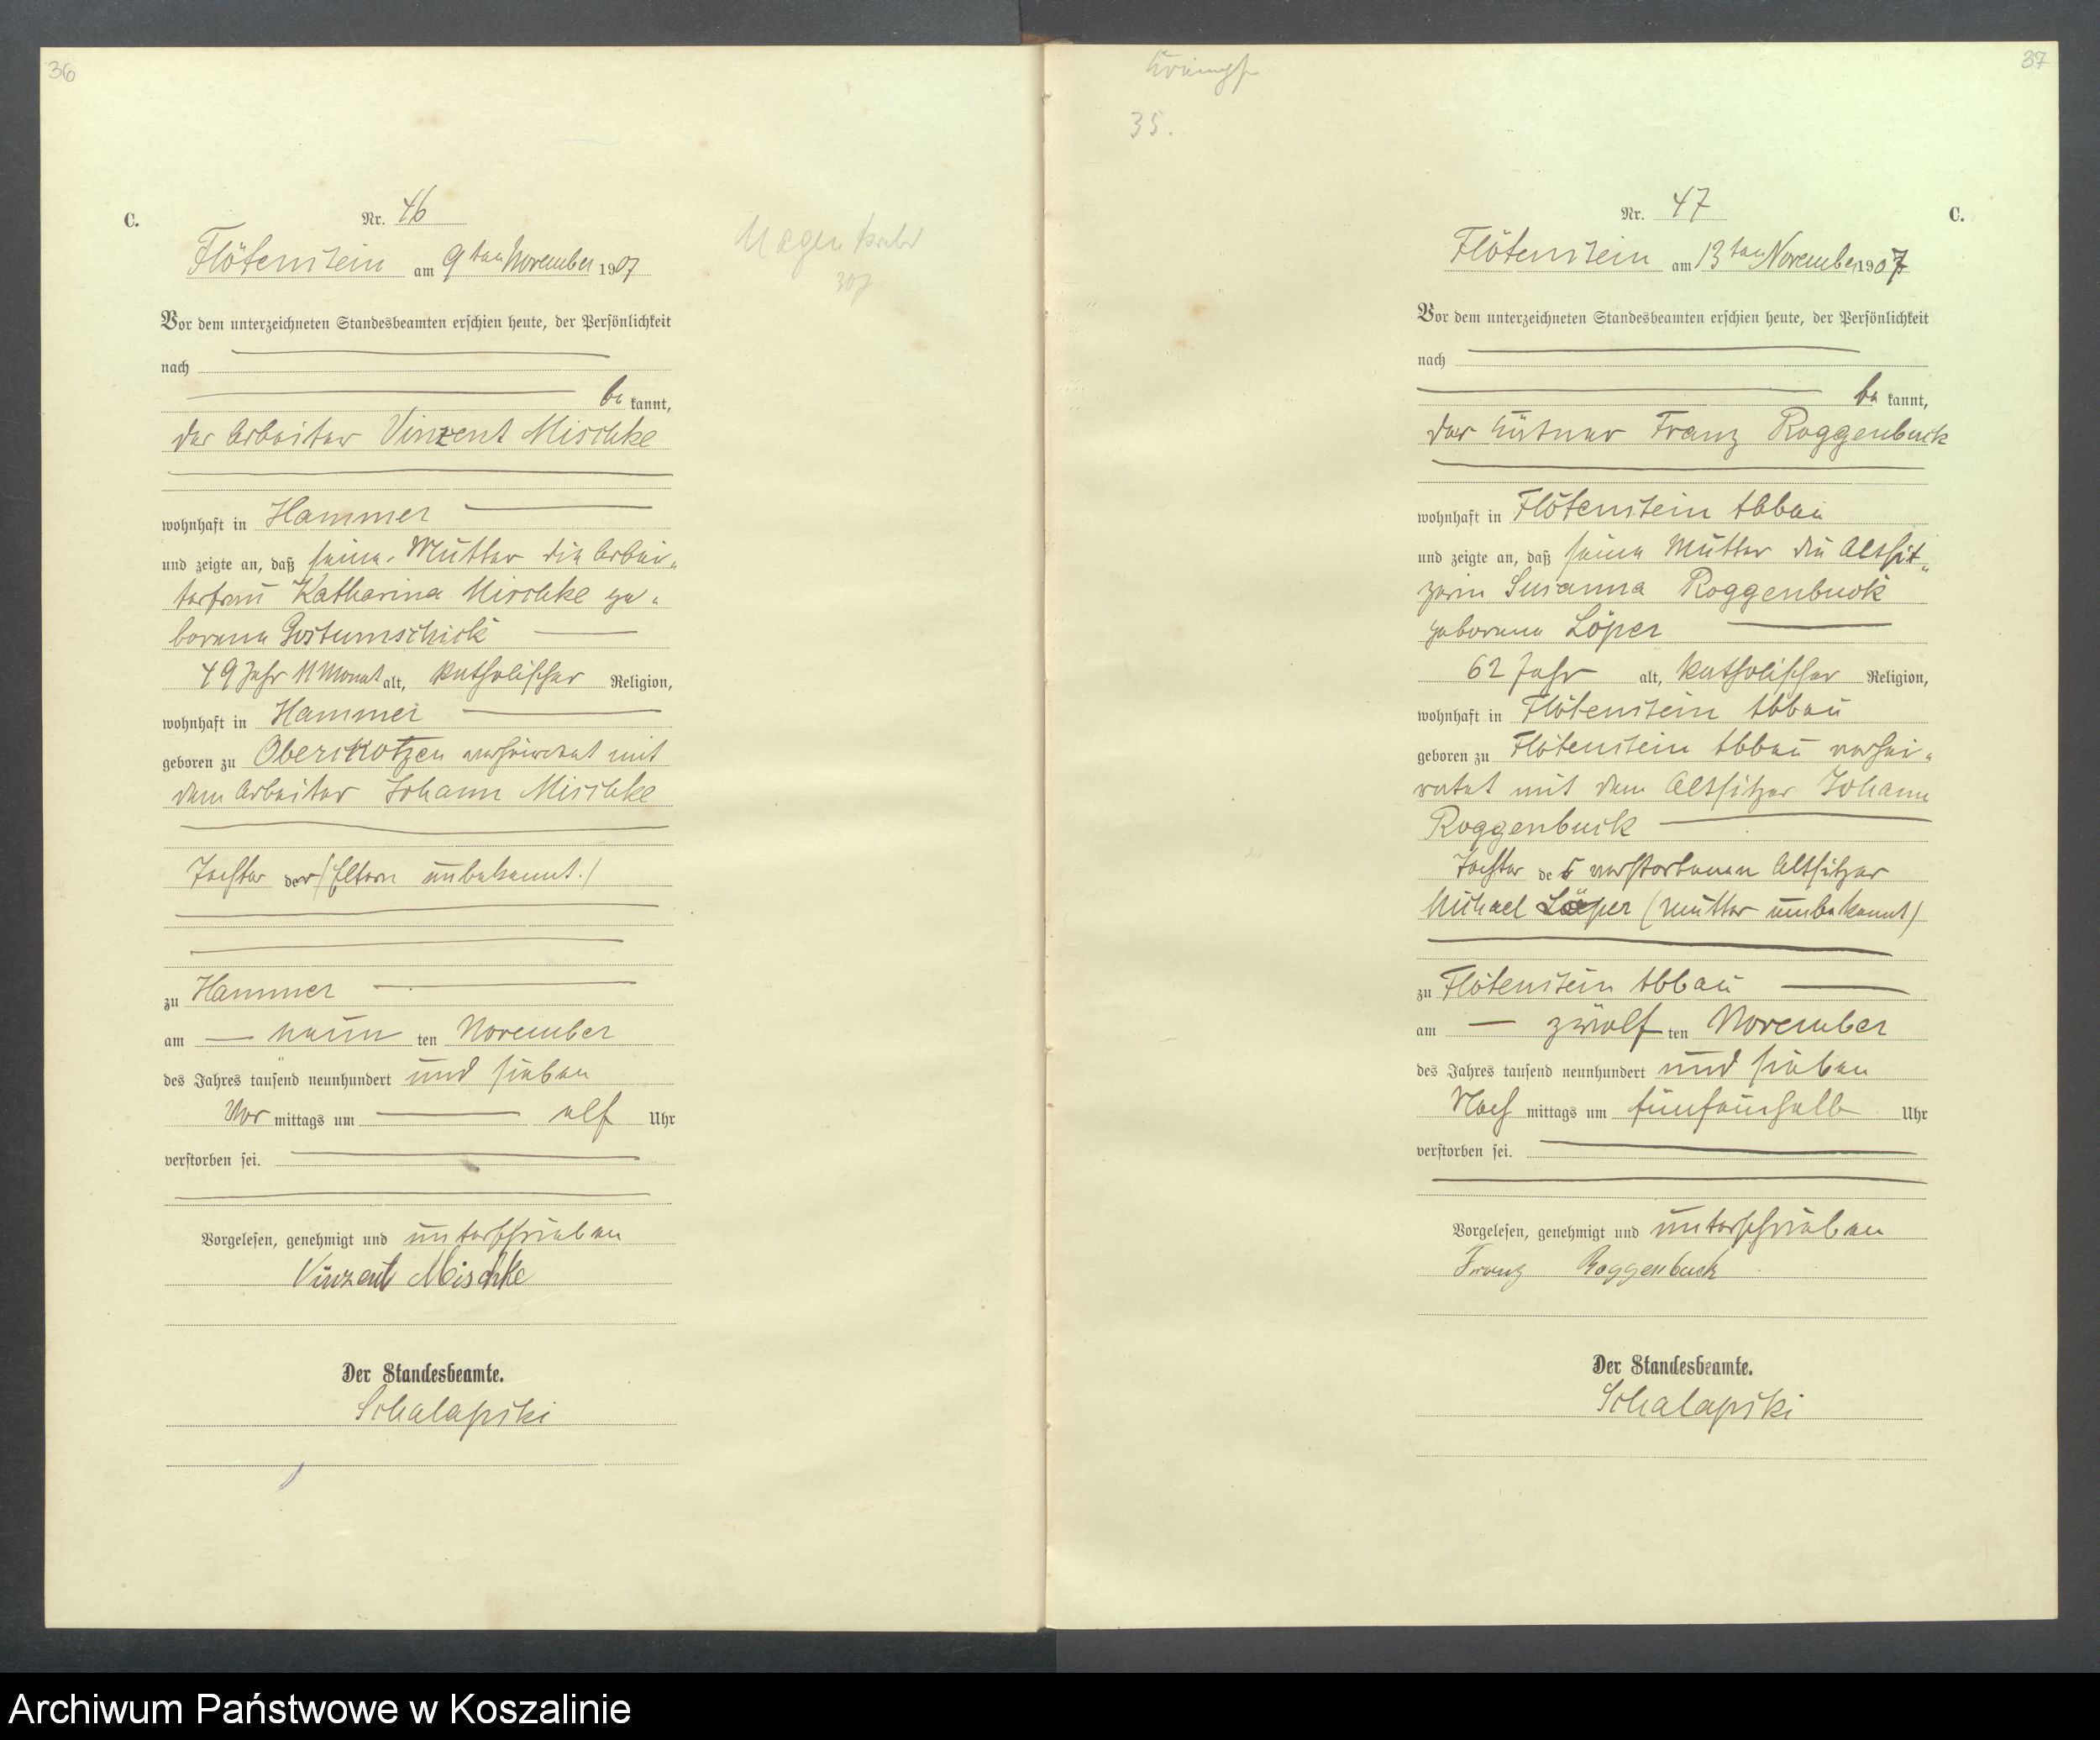 36
C.
Nr. 46
Flötenstein am 9ten November 1907
Vor dem unterzeichneten Standesbeamten erschien heute, der Persönlichkeit
nach
be kannt,
der Arbeiter Vinzent Mischke
wohnhaft in Hammer
und zeigte an, daß seine Mutter die Arbei-
terfrau Katharina Mischke ge-
borene Gostumschick
49 Jahr 11 Monat alt, katholischer Religion,
wohnhaft in Hammer
geboren zu Obersrkotzen verheiratet mit
dem Arbeiter Johann Mischke
Tochter der (Eltern unbekannt.)
zu Hammer
am neun ten November
des Jahres tausend neunhundert und sieben
Vor mittags um elf Uhr
verstorben sei.
Vorgelesen, genehmigt und unterschrieben
Vinzent Mischke
Der Standesbeamte.
Schalapski
Magenkrebs
307
37
35.
C.
Nr. 47
Flötenstein am 13ten November 1907
Vor dem unterzeichneten Standesbeamten erschien heute, der Persönlichkeit
nach
be kannt,
der Kätner Franz Roggenbuck
wohnhaft in Flötenstein Abbau
und zeigte an, daß seine Mutter die Altsit-
zerin Susanna Roggenbuck
geborene Löper
62 Jahr alt, katholischer Religion,
wohnhaft in Flötenstein Abbau
geboren zu Flötenstein Abbau verhei-
ratet mit dem Altsitzer Johann
Roggenbuck
Tochter des verstorbenen Altsitzer
Michael Löper (Mutter unbekannt)
zu Flötenstein Abbau
am zwölf ten November
des Jahres tausend neunhundert und sieben
Nach mittags um fünfeinhalb Uhr
verstorben sei.
Vorgelesen, genehmigt und unterschrieben
Franz Roggenbuck
Der Standesbeamte.
Schalapski
Archiwum Państwowe w Koszalinie